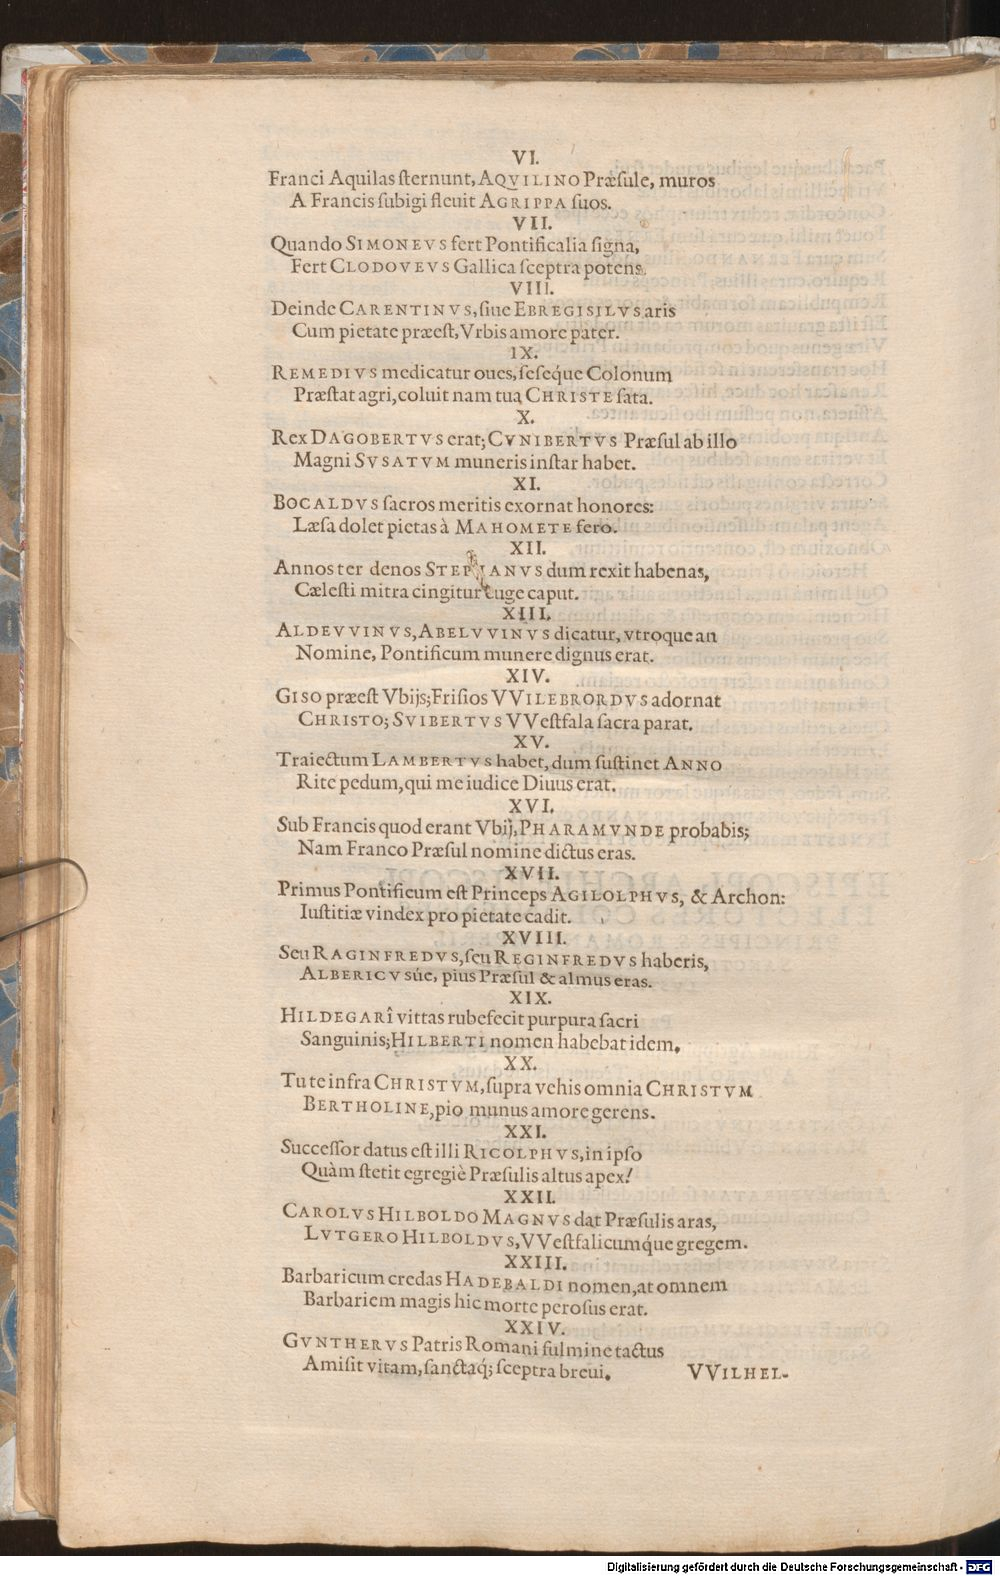 VI.
Franci Aquilas ſternunt, AQVILINO Præſule, muros
A Francis ſubigi fleuit AGRIPPA ſuos.
VII.
Quando SIMONEVS fert Pontificalia ſigna,
Fert CLODOVEVS Gallica ſceptra potens.
VIII.
Deinde CARENTINVS, ſiue EBREGISILVS aris
Cum pietate præeſt, Vrbis amore pater.
IX.
REMEDIVS medicatur oues, ſeſeque Colonum
Præſtat agri, coluit nam tua CHRISTE ſata.
X.
Rex DAGOBERTVS erat; CVNIBERTVS Præſul ab illo
Magni SVSATVM muneris inſtar habet.
XI.
BOCALDVS ſacros meritis exornat honores:
Læſa dolet pietas à MAHOMETE fero.
XII.
Annos ter denos STEPHANVS dum rexit habenas,
Cæleſti mitra cingitur euge caput.
XIII.
ALDEVVINVS, ABELVVINVS dicatur, vtroque an
Nomine, Pontificum munere dignus erat.
XIV.
GISO præeſt Vbijs; Friſios VVILEBRORDVS adornat
CHRISTO; SVIBERTVS VVeſtfala ſacra parat.
XV.
Traiectum LAMBERTVS habet, dum ſuſtinet ANNO
Rite pedum, qui me iudice Diuus erat.
XVI.
Sub Francis quod erant Vbij, PHARAMVNDE probabis;
Nam Franco Præſul nomine dictus eras.
XVII.
Primus Pontificum eſt Princeps AGILOLPHVS, & Archon:
Iuſtitiæ vindex pro pietate cadit.
XVIII.
Seu RAGINFREDVS, ſeu REGINFREDVS haberis,
ALBERICVSúe, pius Præſul & almus eras.
XIX.
HILDEGARî vittas rubefecit purpura ſacri
Sanguinis; HILBERTI nomen habebat idem.
XX.
Tu te infra CHRISTVM, ſupra vehis omnia CHRISTVM
BERTHOLINE, pio munus amore gerens.
XXI.
Succeſſor datus eſt illi RICOLPHVS, in ipſo
Quàm ſtetit egregiè Præſulis altus apex!
XXII.
CAROLVS HILBOLDO MAGNVS dat Præſulis aras,
LVTGERO HILBOLDVS, VVeſtfalicumq́ue gregem.
XXIII.
Barbaricum credas HADEBALDI nomen, at omnem
Barbariem magis hic morte peroſus erat.
XXIV.
GVNTHERVS Patris Romani fulmine tactus
Amiſit vitam, ſanctaq́; ſceptra breui.
VVILHEL-
Digitalisierung gefördert durch die Deutsche Forschungsgemeinschaft - DFG